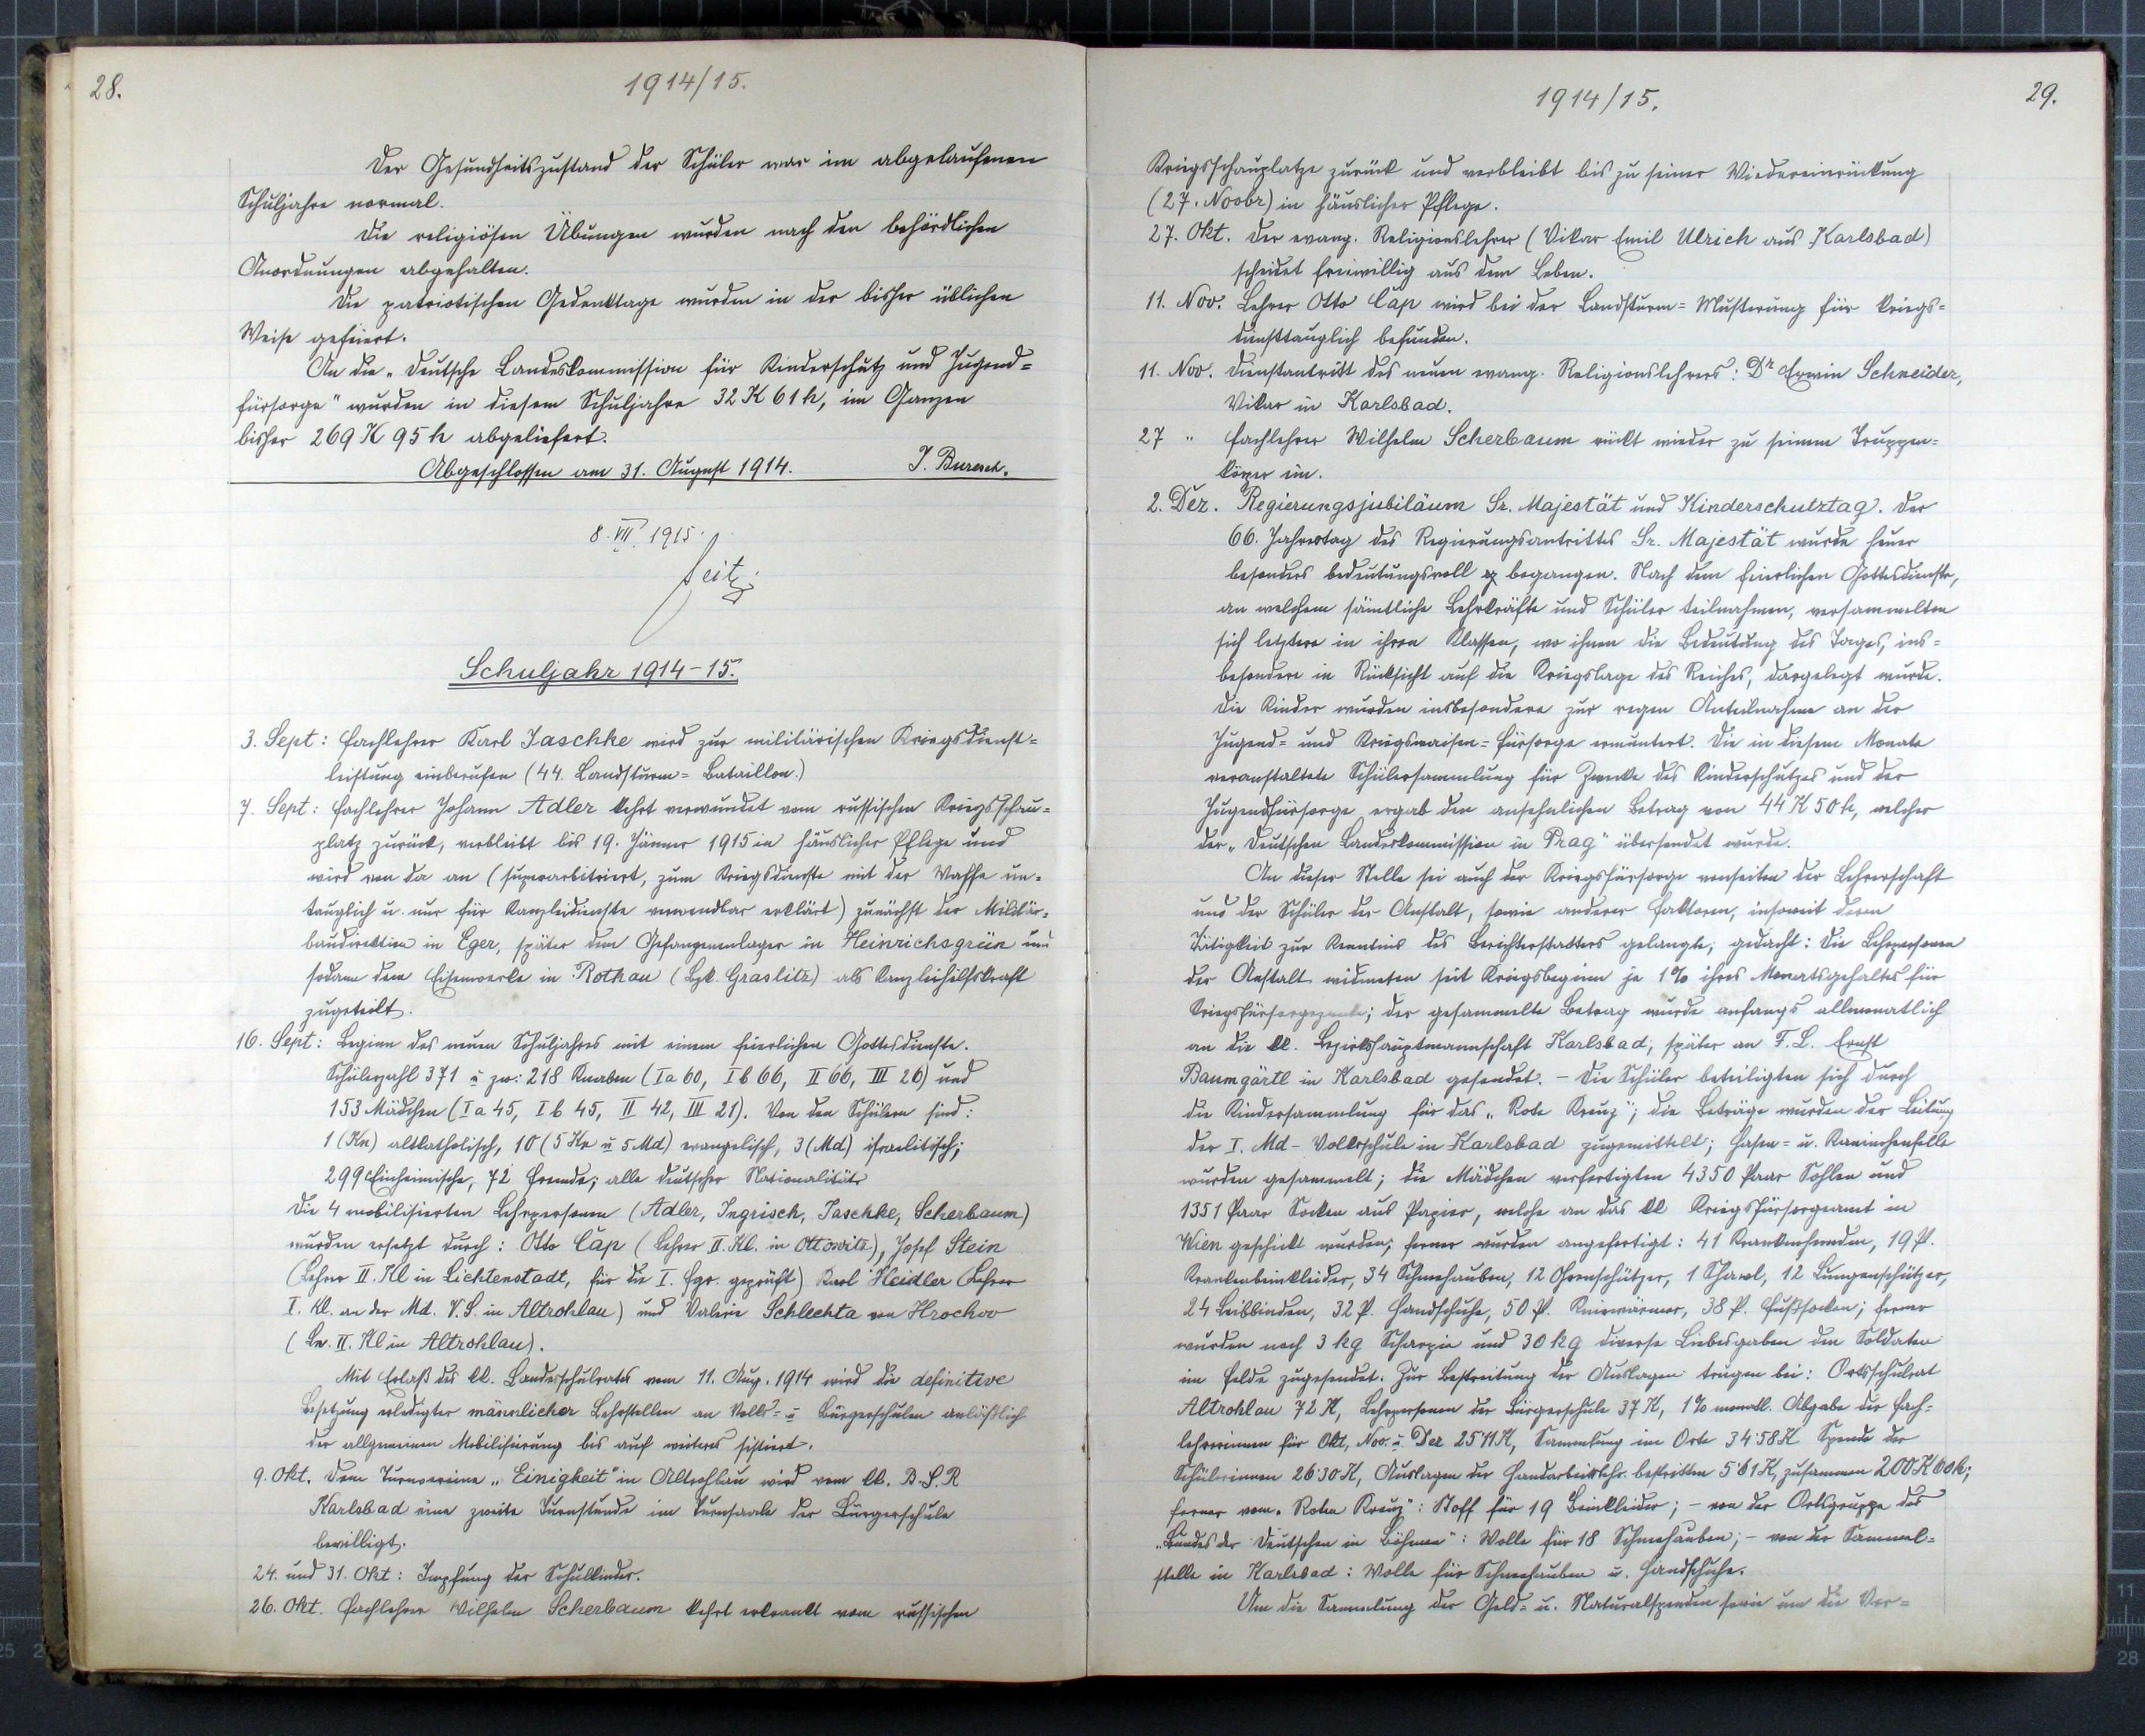 28.
1914/15.
Der Gesundheitszustand der Schüler war im abgelaufenen
Schuljahre normal.
Die religiösen Übungen wurden nach den behördlichen
Anordnungen abgehalten.
Die patriotischen Gedenktage wurden in der bisher üblichen
Weise gefeiert.
An die „Deutsche Landeskommission für Kinderschutz und Jugend-
fürsorge" wurden in diesem Schuljahre 32 K 61 h, im Ganzen
bisher 269 K 95 h abgeliefert.
Abgeschlossen am 31. August 1914. J. Buresch.
8. VII. 1915.
Seitz
Schuljahr 1914-15.
3. Sept: Fachlehrer Karl Jaschke wird zur militärischen Kriegsdienst-
leistung einberufen (44. Landsturm-Bataillon.)
7. Sept: Fachlehrer Johann Adler kehrt verwundet vom russischen Kriegsschau-
platz zurück, verbleibt bis 19. Jänner 1915 in häuslicher Pflege und
wird von da an (superarbitriert, zum Kriegsdienste mit der Waffe un-
tauglich u. nur für Kanzleidienste verwendbar erklärt) zunächst der Militär-
baudirektion in Eger, später dem Gefangenenlager in Heinrichsgrün und
sodann dem Eisenwerke in Rothau (Bzk. Graslitz) als Kanzleihilfskraft
zugeteilt.
16. Sept: Beginn des neuen Schuljahres mit einem feierlichen Gottesdienste.
Schülerzahl 371 u zw: 218 Knaben (Ia 60, Ib 66, II 66, III 26) und
153 Mädchen (Ia 45, Ib 45, II 42, III 21). Von den Schülern sind:
1 (Kn) altkatholisch, 10 (5 Kn u 5 Md) evangelisch, 3 (Md) israelitisch;
299 Einheimische, 72 Fremde; alle deutscher Nationalität.
Die 4 mobilisierten Lehrpersonen (Adler, Ingrisch, Jaschke, Scherbaum)
wurden ersetzt durch: Otto Čap (Lehrer II. Kl. in Ottowitz), Josef Stein
(Lehrer II. Kl in Lichtenstadt, für die I. Fgr. geprüft) Karl Heidler (Lehrer
I. Kl. an der Md. V. S. in Altrohlau) und Valerie Schlechta von Hrochov
(Ln. II. Kl in Altrohlau).
Mit Erlaß des kk. Landesschulrates vom 11. Aug. 1914 wird die definitive
Besetzung erledigter männlicher Lehrstellen an Volks- u Bürgerschulen anläßlich
der allgemeinen Mobilisierung bis auf weiteres sistiert.
9. Okt. Dem Turnvereine „Einigkeit" in Altrohlau wird vom kk. B. S. R
Karlsbad eine zweite Turnstunde im Turnsaale der Bürgerschule
bewilligt.
24. und 31. Okt: Impfung der Schulkinder.
26. Okt. Fachlehrer Wilhelm Scherbaum kehrt erkrankt vom russischen
1914/15.
29.
Kriegsschauplatze zurück und verbleibt bis zu seiner Wiedereinrückung
(27. Novbr) in häuslicher Pflege.
27. Okt. Der evang. Religionslehrer (Vikar Emil Ulrich aus Karlsbad)
scheidet freiwillig aus dem Leben.
11. Nov. Lehrer Otto Čap wird bei der Landsturm-Musterung für kriegs-
diensttauglich befunden.
11. Nov. Dienstantritt des neuen evang. Religionslehrers: Dr Erwin Schneider,
Vikar in Karlsbad.
27 " Fachlehrer Wilhelm Scherbaum rückt wieder zu seinem Truppen-
körper ein.
2. Dez. Regierungsjubiläum Sr. Majestät und Kinderschutztag. Der
66. Jahrestag des Regierungsantrittes Sr. Majestät wurde heuer
besonders bedeutungsvoll begangen. Nach dem feierlichen Gottesdienste,
an welchem sämtliche Lehrkräfte und Schüler teilnahmen, versammelten
sich letztere in ihren Klassen, wo ihnen die Bedeutung des Tages, ins-
besondere in Rücksicht auf die Kriegslage des Reiches, dargelegt wurde.
Die Kinder wurden insbesondere zur regen Anteilnahme an der
Jugend- und Kriegswaisen-Fürsorge ermuntert. Die in diesem Monate
veranstaltete Schülersammlung für Zwecke des Kinderschutzes und der
Jugendfürsorge ergab den ansehnlichen Betrag von 44 K 50 h, welcher
der „Deutschen Landeskommission in Prag" übersendet wurde.
An dieser Stelle sei auch der Kriegsfürsorge vonseiten der Lehrerschaft
und der Schüler der Anstalt, sowie anderer Faktoren, insoweit deren
Tätigkeit zur Kenntnis des Berichterstatters gelangte, gedacht: Die Lehrpersonen
der Anstalt widmeten seit Kriegsbeginn je 1% ihres Monatsgehaltes für
Kriegsfürsorgezwecke; der gesammelte Betrag wurde anfangs allmonatlich
an die kk. Bezirkshauptmannschaft Karlsbad, später an F. L. Ernst
Baumgärtl in Karlsbad gesendet. - Die Schüler beteiligten sich durch
die Kindersammlung für das „Rote Kreuz"; die Beträge wurden der Leitung
der I. Md-Volksschule in Karlsbad zugemittelt; Hasen- u. Kaninchenfelle
wurden gesammelt; die Mädchen verfertigten 4350 Paar Sohlen und
1351 Paar Socken aus Papier, welche an das kk Kriegsfürsorgeamt in
Wien geschickt wurden; ferner wurden angefertigt: 41 Krankenhemden, 19 P.
Krankenbeinkleider, 34 Schneehauben, 12 Ohrenschützer, 1 Shawl, 12 Lungenschützer,
24 Leibbinden, 32 P. Handschuhe, 50 P. Kniewärmer, 38 P. Fußsocken; ferner
wurden noch 3 kg Scharpie und 30 kg diverse Liebesgaben den Soldaten
im Felde zugesendet. Zur Bestreitung der Auslagen trugen bei: Ortsschulrat
Altrohlau 72 K, Lehrpersonen der Bürgerschule 37 K, 1% monatl. Abgabe der Fach-
lehrerinnen für Okt, Nov. u. Dez 25·11 K, Sammlung im Orte 34·58 K Spende der
Schülerinnen 26·30 K, Auslagen der Handarbeitslehr. bestritten 5·61 K, zusammen 200 K 60 h;
ferner vom „Roten Kreuz": Stoff für 19 Beinkleider; - von der Ortsgruppe des
„Bundes der Deutschen in Böhmen": Wolle für 18 Schneehauben; - von der Sammel-
stelle in Karlsbad: Wolle für Schneehauben u. Handschuhe.
Um die Sammlung der Geld- u. Naturalspenden sowie um die Ver-